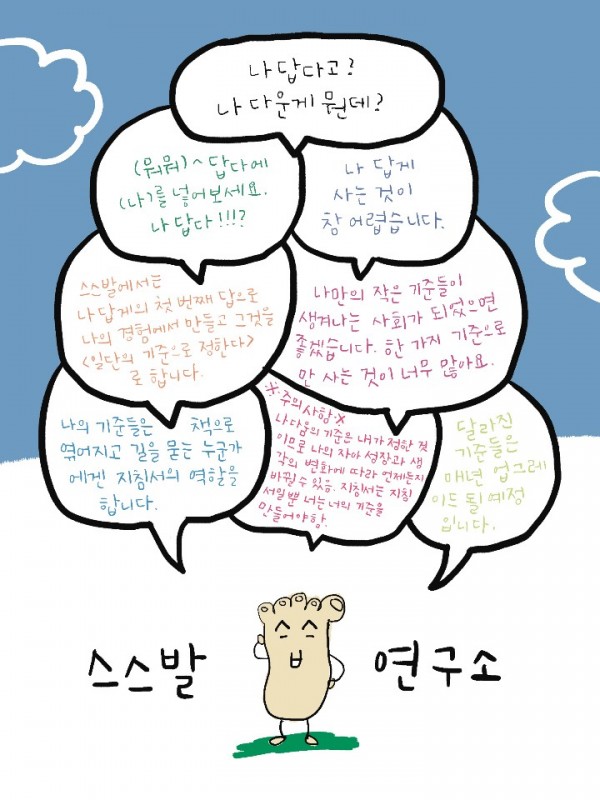 나 답다고?
나 다운게 뭔데?
(뭐뭐)~ 답다에
(나)를 넣어보세요.
나 답다!!!?
나 답게
사는 것이
참 어렵습니다.
스스발에서는
나 답게의 첫 번째 답으로
나의 경험에서 만들고 그것을
<일단의 기준으로 정한다>
로 합니다.
나만의 작은 기준들이
생겨나는 사회가 되었으면
좋겠습니다. 한 가지 기준으로
만 사는 것이 너무 많아요.
나의 기준들은 책으로
엮어지고 길을 묻는 누군가
에겐 지침서의 역할을
합니다.
※주의사항※
나다움의 기준은 내가 정한 것
이므로 나의 자아 성장과 생
각의 변화에 따라 언제든지
바뀔 수 있음. 지침서는 지침
서일 뿐 너는 너의 기준을
만들어야 함.
달라진
기준들은
매년 업그레
이드 될 예정
입니다.
스스발 연구소